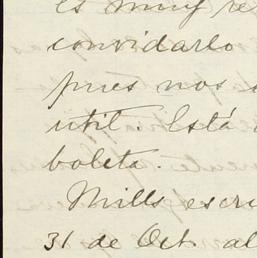 es muy re
convidarlo
pues nos
util. Está
boleta.
Mills escri
31 de Oct. al